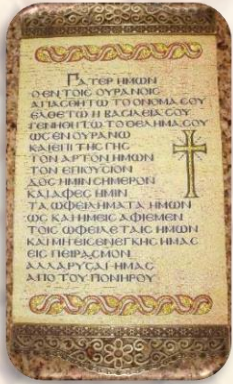 ΠΑΤΕΡ ΗΜΩΝ
Ο ΕΝ ΤΟΙϹ ΟΥΡΑΝΟΙϹ
ΑΓΙΑϹΘΗΤΩ ΤΟ ΟΝΟΜΑ ϹΟΥ
ΕΛΘΕΤΩ Η ΒΑϹΙΛΕΙΑ ϹΟΥ
ΓΕΝΗΘΗΤΩ ΤΟ ΘΕΛΗΜΑ ϹΟΥ
ΩϹ ΕΝ ΟΥΡΑΝΩ
ΚΑΙ ΕΠΙ ΤΗϹ ΓΗϹ
ΤΟΝ ΑΡΤΟΝ ΗΜΩΝ
ΤΟΝ ΕΠΙΟΥϹΙΟΝ
ΔΟϹ ΗΜΙΝ ϹΗΜΕΡΟΝ
ΚΑΙ ΑΦΕϹ ΗΜΙΝ
ΤΑ ΟΦΕΙΛΗΜΑΤΑ ΗΜΩΝ
ΩϹ ΚΑΙ ΗΜΕΙϹ ΑΦΙΕΜΕΝ
ΤΟΙϹ ΟΦΕΙΛΕΤΑΙϹ ΗΜΩΝ
ΚΑΙ ΜΗ ΕΙϹΕΝΕΓΚΗϹ ΗΜΑϹ
ΕΙϹ ΠΕΙΡΑϹΜΟΝ
ΑΛΛΑ ΡΥϹΑΙ ΗΜΑϹ
ΑΠΟ ΤΟΥ ΠΟΝΗΡΟΥ